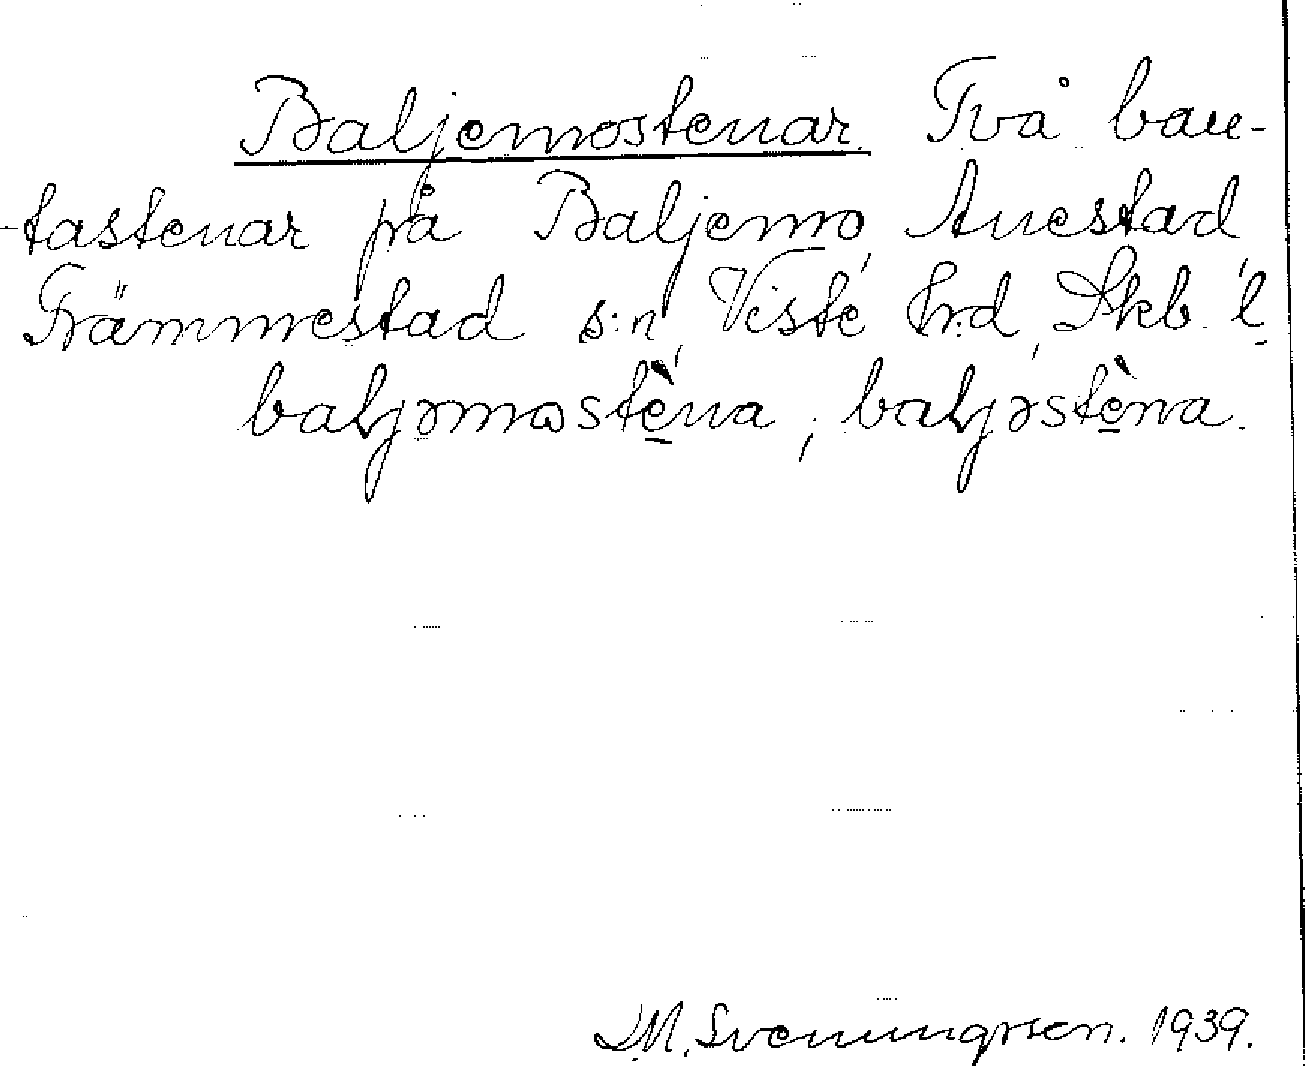 Baljemostenar. Två bau-
-tastenar på Baljemo, Anestad
Främmestad s:n, Viste hrd, Skb. l.
baljəmostèna, baljəstèna.
L.M. Svenungsson. 1939.